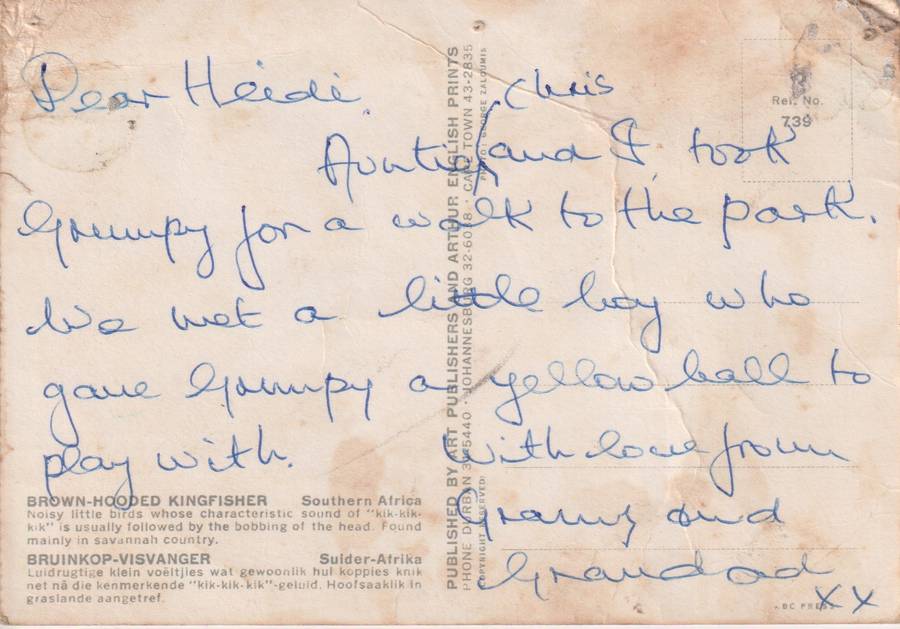 Dear Heidi,
Chris
Auntie and I took
Grumpy for a walk to the park.
We met a little boy who
gave Grumpy a yellow ball to
play with. With love from
Granny and
Grandad
xx
BROWN-HOODED KINGFISHER Southern Africa
Noisy little birds whose characteristic sound of "kik-kik-
kik" is usually followed by the bobbing of the head. Found
mainly in savannah country.
BRUINKOP-VISVANGER Suider-Afrika
Luidrugtige klein voëltjies wat gewoonlik hul koppies knik
net ná die kenmerkende "kik-kik-kik"-geluid. Hoofsaaklik in
graslande aangetref.
PUBLISHED BY ART PUBLISHERS AND ARTHUR ENGLISH PRINTS
PHONE DURBAN · JOHANNESBURG · CAPE TOWN 43-2835
COPYRIGHT RESERVED
PHOTO: GEORGE ZALOUMIS
Ref. No.
739
BC PRESS